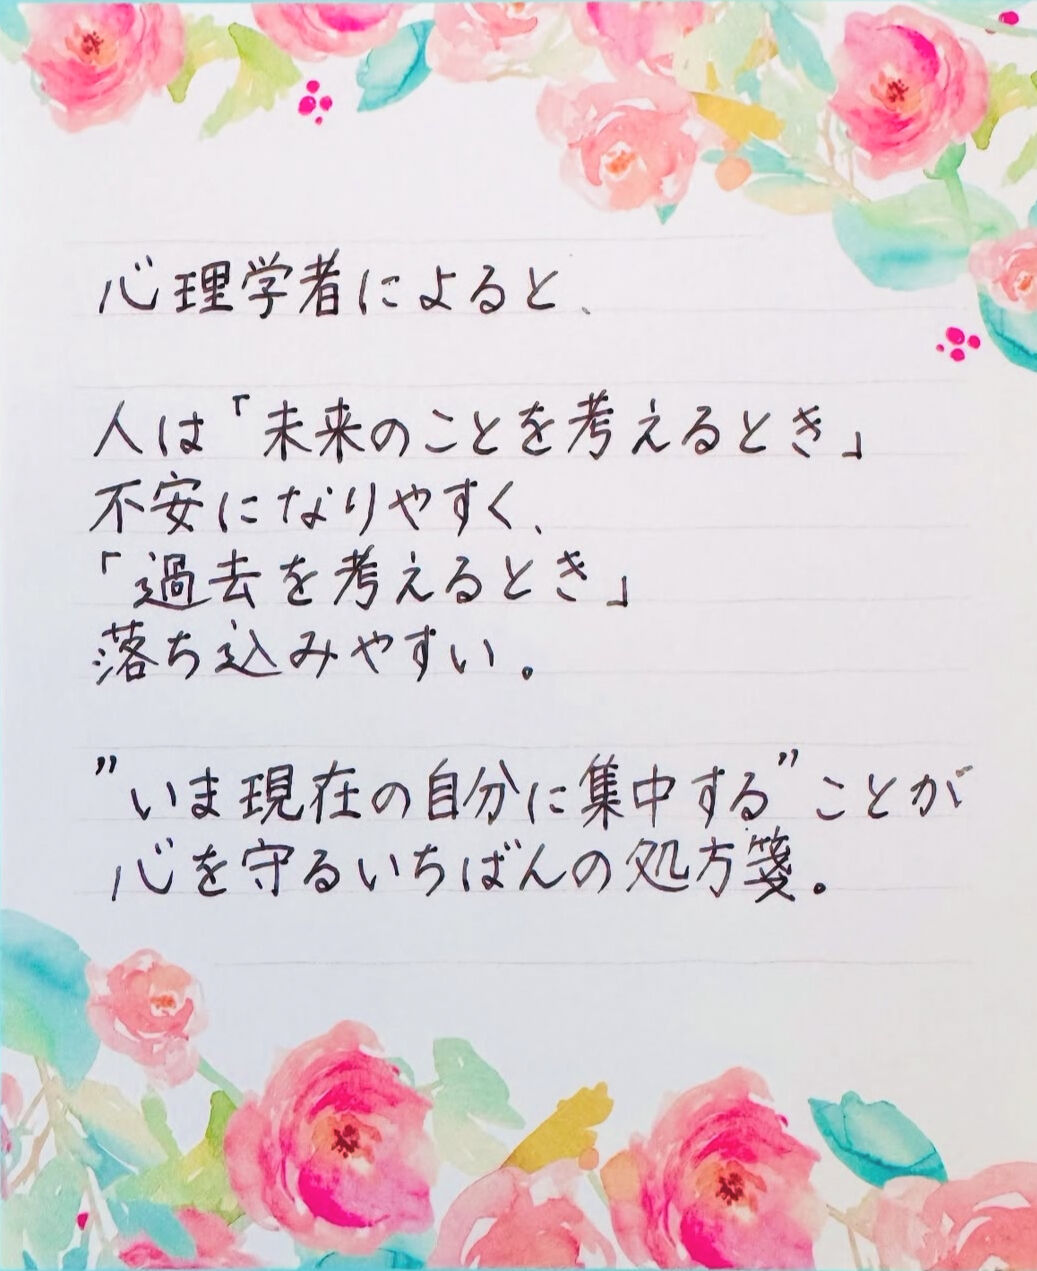 心理学者によると、
人は「未来のことを考えるとき」
不安になりやすく、
「過去を考えるとき」
落ち込みやすい。
”いま現在の自分に集中する”ことが
心を守るいちばんの処方箋。